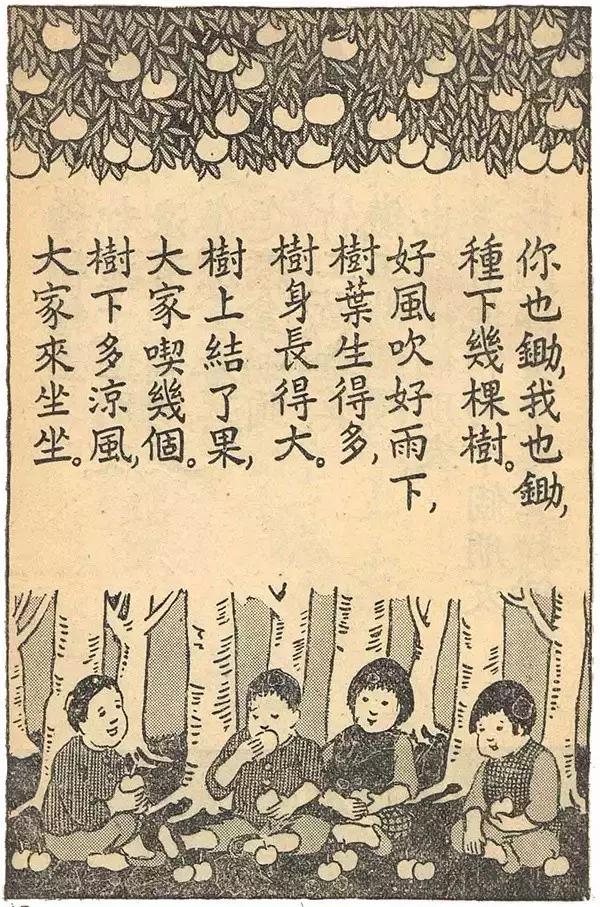 你也鋤,我也鋤,
種下幾棵樹。
好風吹好雨下,
樹葉生得多,
樹身長得大。
樹上結了果,
大家喫幾個。
樹下多涼風,
大家來坐坐。